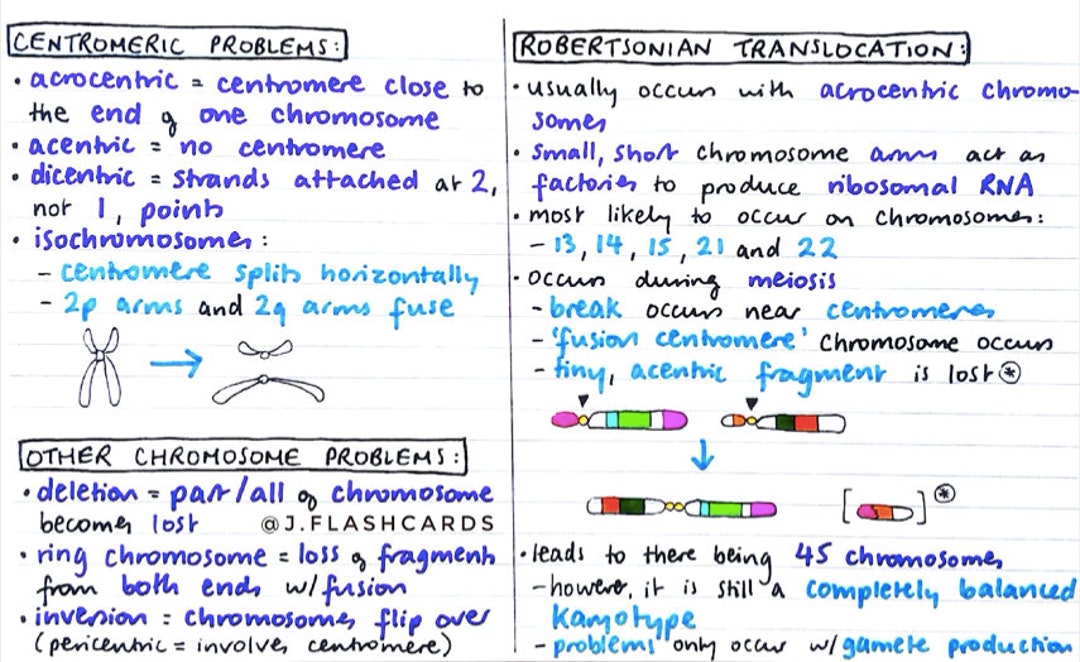 CENTROMERIC PROBLEMS:
• acrocentric = centromere close to
the end of one chromosome
• acentric = no centromere
• dicentric = strands attached at 2,
not 1, points
• isochromosomes:
- centromere splits horizontally
- 2p arms and 2q arms fuse
OTHER CHROMOSOME PROBLEMS:
• deletion = part/all of chromosome
becomes lost
@J.FLASHCARDS
• ring chromosome = loss of fragments
from both ends w/fusion
• inversion = chromosomes flip over
(pericentric = involves centromere)
ROBERTSONIAN TRANSLOCATION:
• usually occurs with acrocentric chromo-
somes
• small, short chromosome arms act as
factories to produce ribosomal RNA
• most likely to occur on chromosomes:
- 13, 14, 15, 21 and 22
• occurs during meiosis
- break occurs near centromeres
- 'fusion centromere' chromosome occurs
- tiny, acentric fragment is lost *
[ ] *
• leads to there being 45 chromosomes
- however, it is still a completely balanced
karyotype
- problems only occur w/gamete production